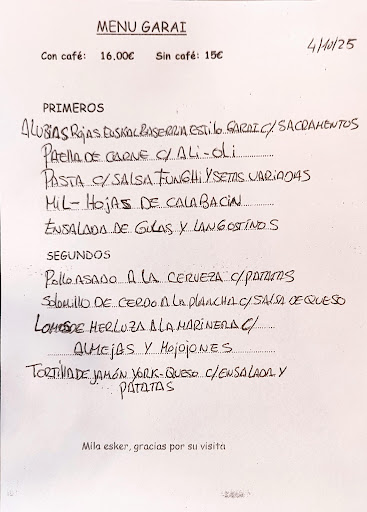 MENU GARAI
Con café: 16.00€ Sin café: 15€
4/10/25
PRIMEROS
ALUBIAS ROJAS EUSKAL BASERRIA ESTILO GARAI C/ SACRAMENTOS
PAELLA DE CARNE C/ ALI-OLI
PASTA C/ SALSA FUNGHI Y SETAS VARIADAS
MIL-HOJAS DE CALABACIN
ENSALADA DE GULAS Y LANGOSTINOS
SEGUNDOS
POLLO ASADO A LA CERVEZA C/PATATAS
SOLOMILLO DE CERDO A LA PLANCHA C/ SALSA DE QUESO
LOMOS DE MERLUZA A LA MARINERA C/
ALMEJAS Y MEJOJONES
TORTILLA DE JAMÓN YORK-QUESO C/ ENSALADA Y
PATATAS
Mila esker, gracias por su visita